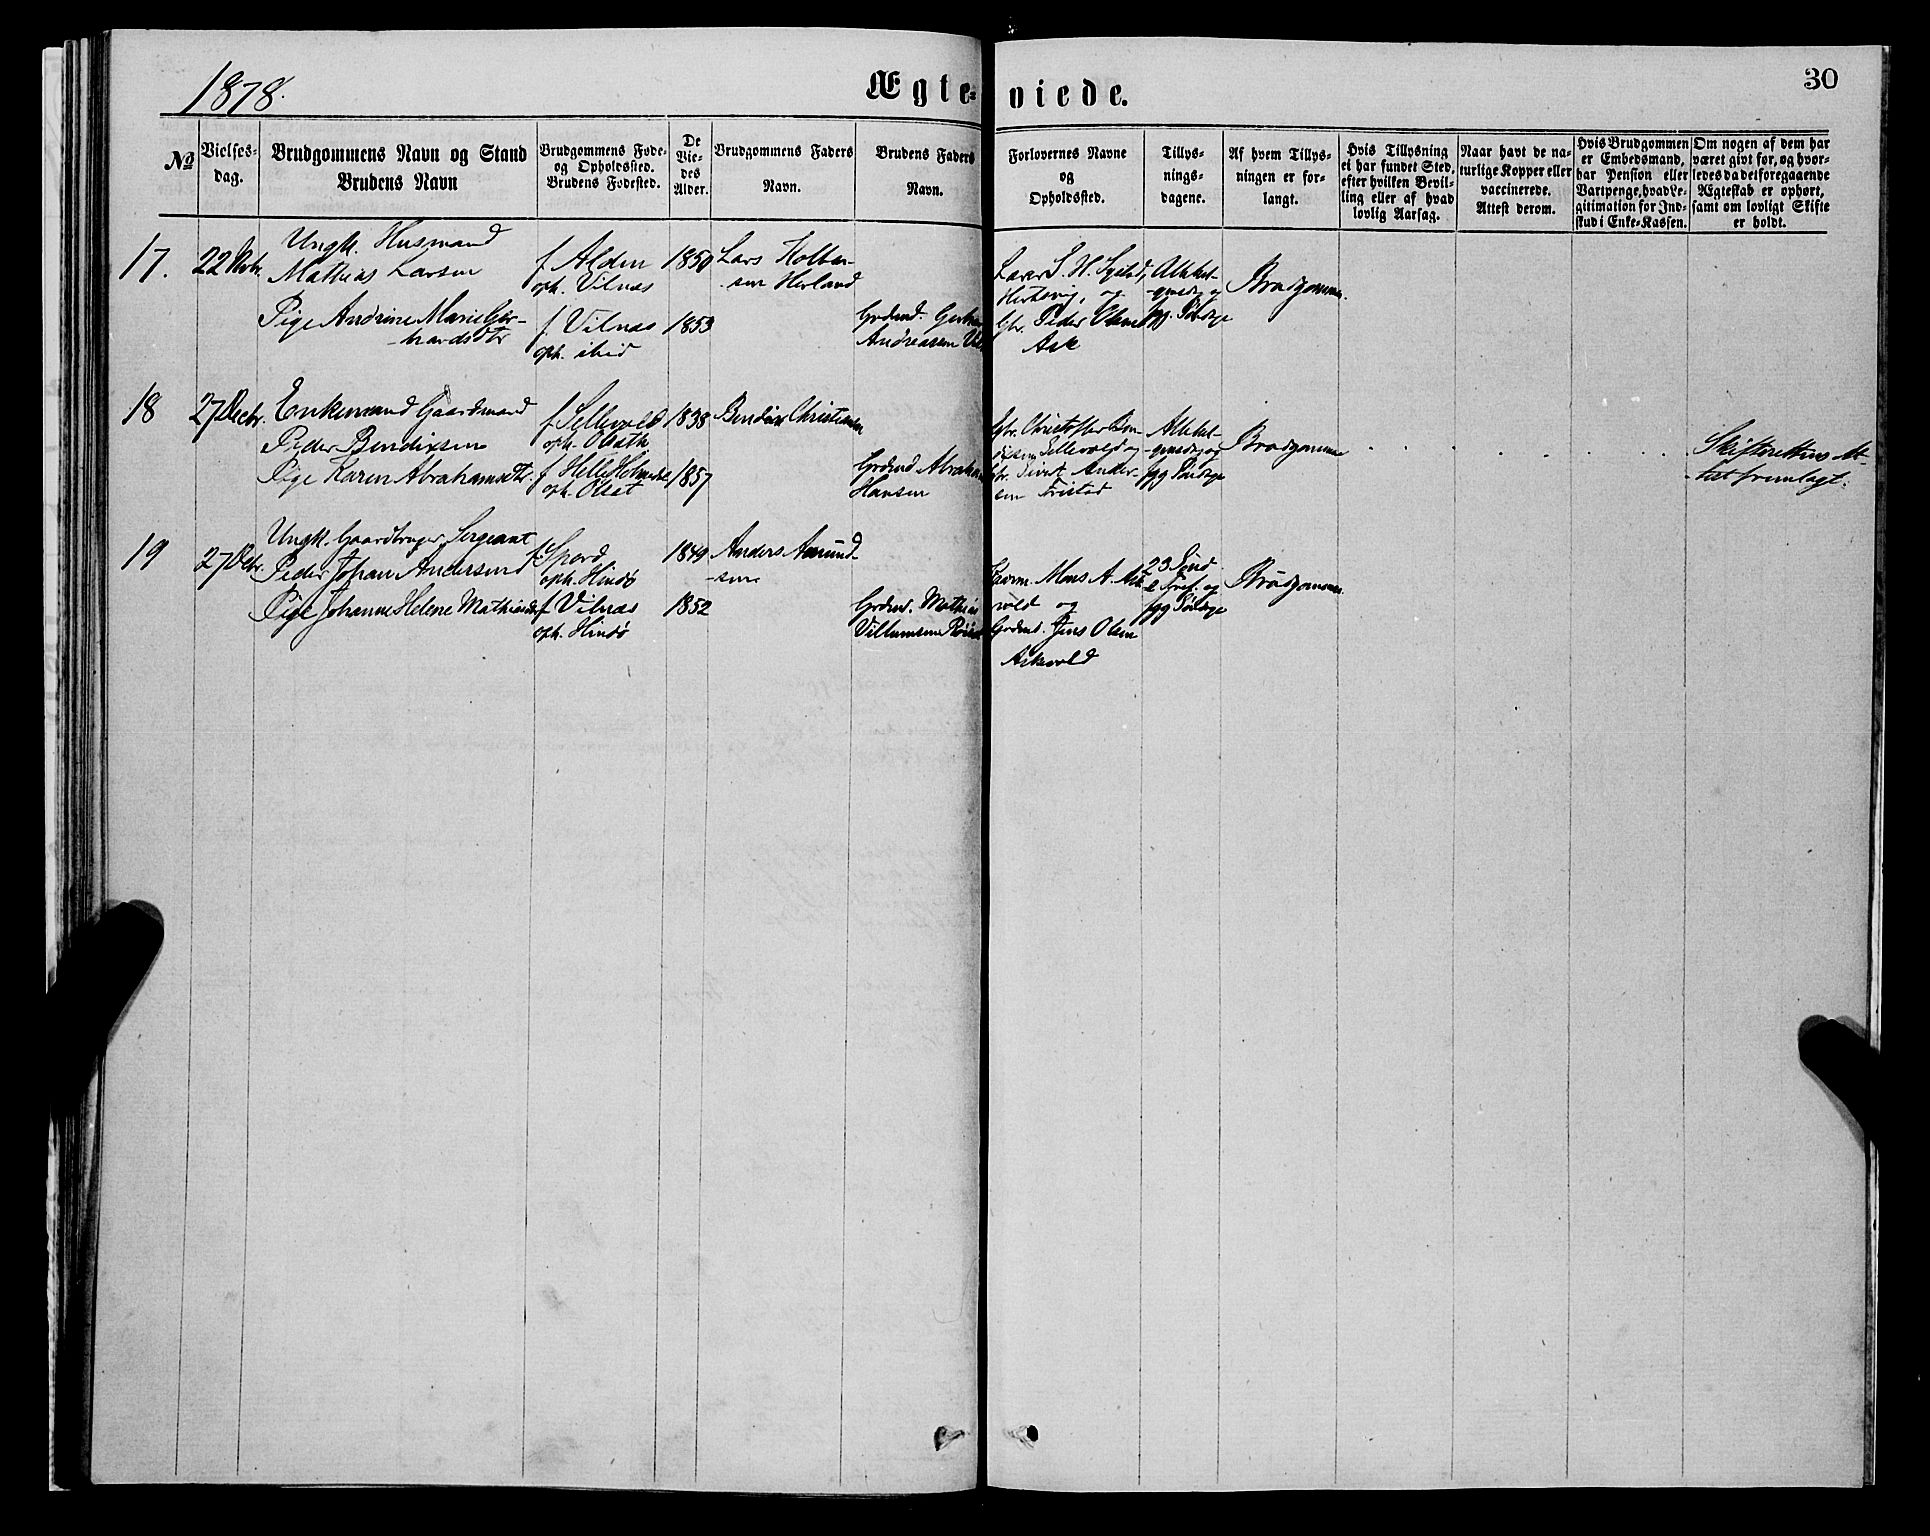 1878.
Ægte-viede.
30
No
Vielses-
dag.
Brudgommens Navn og Stand
Brudens Navn
Brudgommens Føde-
og Opholdssted.
Brudens Fødested.
De
Vie-
des
Alder.
Brudgommens Faders
Navn.
Brudens Faders
Navn.
Forlovernes Navne
og
Opholdssted.
Tillys-
nings-
dagene.
Af hvem Tillys-
ningen er for-
langt.
Hvis Tillysning
ei har fundet Sted,
efter hvilken Bevil-
ling eller af hvad
lovlig Aarsag.
Naar havt de na-
turlige Kopper eller
vaccinerede.
Attest derom.
Hvis Brudgommen
er Embedsmand,
har Pension eller
Vartpenge, hvad Le-
gitimation for Ind-
skud i Enke-Kassen.
Om nogen af dem har
været givt før, og hvor-
ledes da det foregaaende
Ægteskab er ophørt,
samt om lovligt Skifte
er holdt.
17.
22 Nvbr.
Ungk. Husmand
Mathias Larsen
Pige Andrine Marie Ger-
hardsdtr
f Alden
oph. Vilnæs
f. Vilnæs
oph. ibid
1850
1853
Lars Kolbein-
sen Herland
Grdmd.
Andreassen
Lærer S. H.
og
Gbr. Peder
Ask
flg. Søndage
Brudgommen.
18
27 Decbr.
Enkemand Gaardmand
Peder Bendixsen
Pige Karen Abrahamsdtr.
f Sellevold
oph. Olset
f Helle
oph. Olset
1838
1857
Bendix Christiansen
Grdmd Abraham
Hansen
Gbr. Christoffer Ben-
dixsen Sellevold og
Gbr. Sivert Ander-
sen
flg Søndage
Brudgommen
Skifterettens At-
test fremlagt.
19
27 Dcbr.
Ungk. Gaardbruger Sergeant
Peder Johan Andersen
Pige Johanne Helene Mathiasdtr
f.
oph. Hindø
f Vilnæs
oph. Hindø
1849
1852
Anders Amund-
sen
Grdmd. Mathias
Villumsen
Mons A. Ask-
vold og
Grdmd. Jens Olsen
Askvold
23 Sønd.
e Tref. og
flg Søndage
Brudgommen.